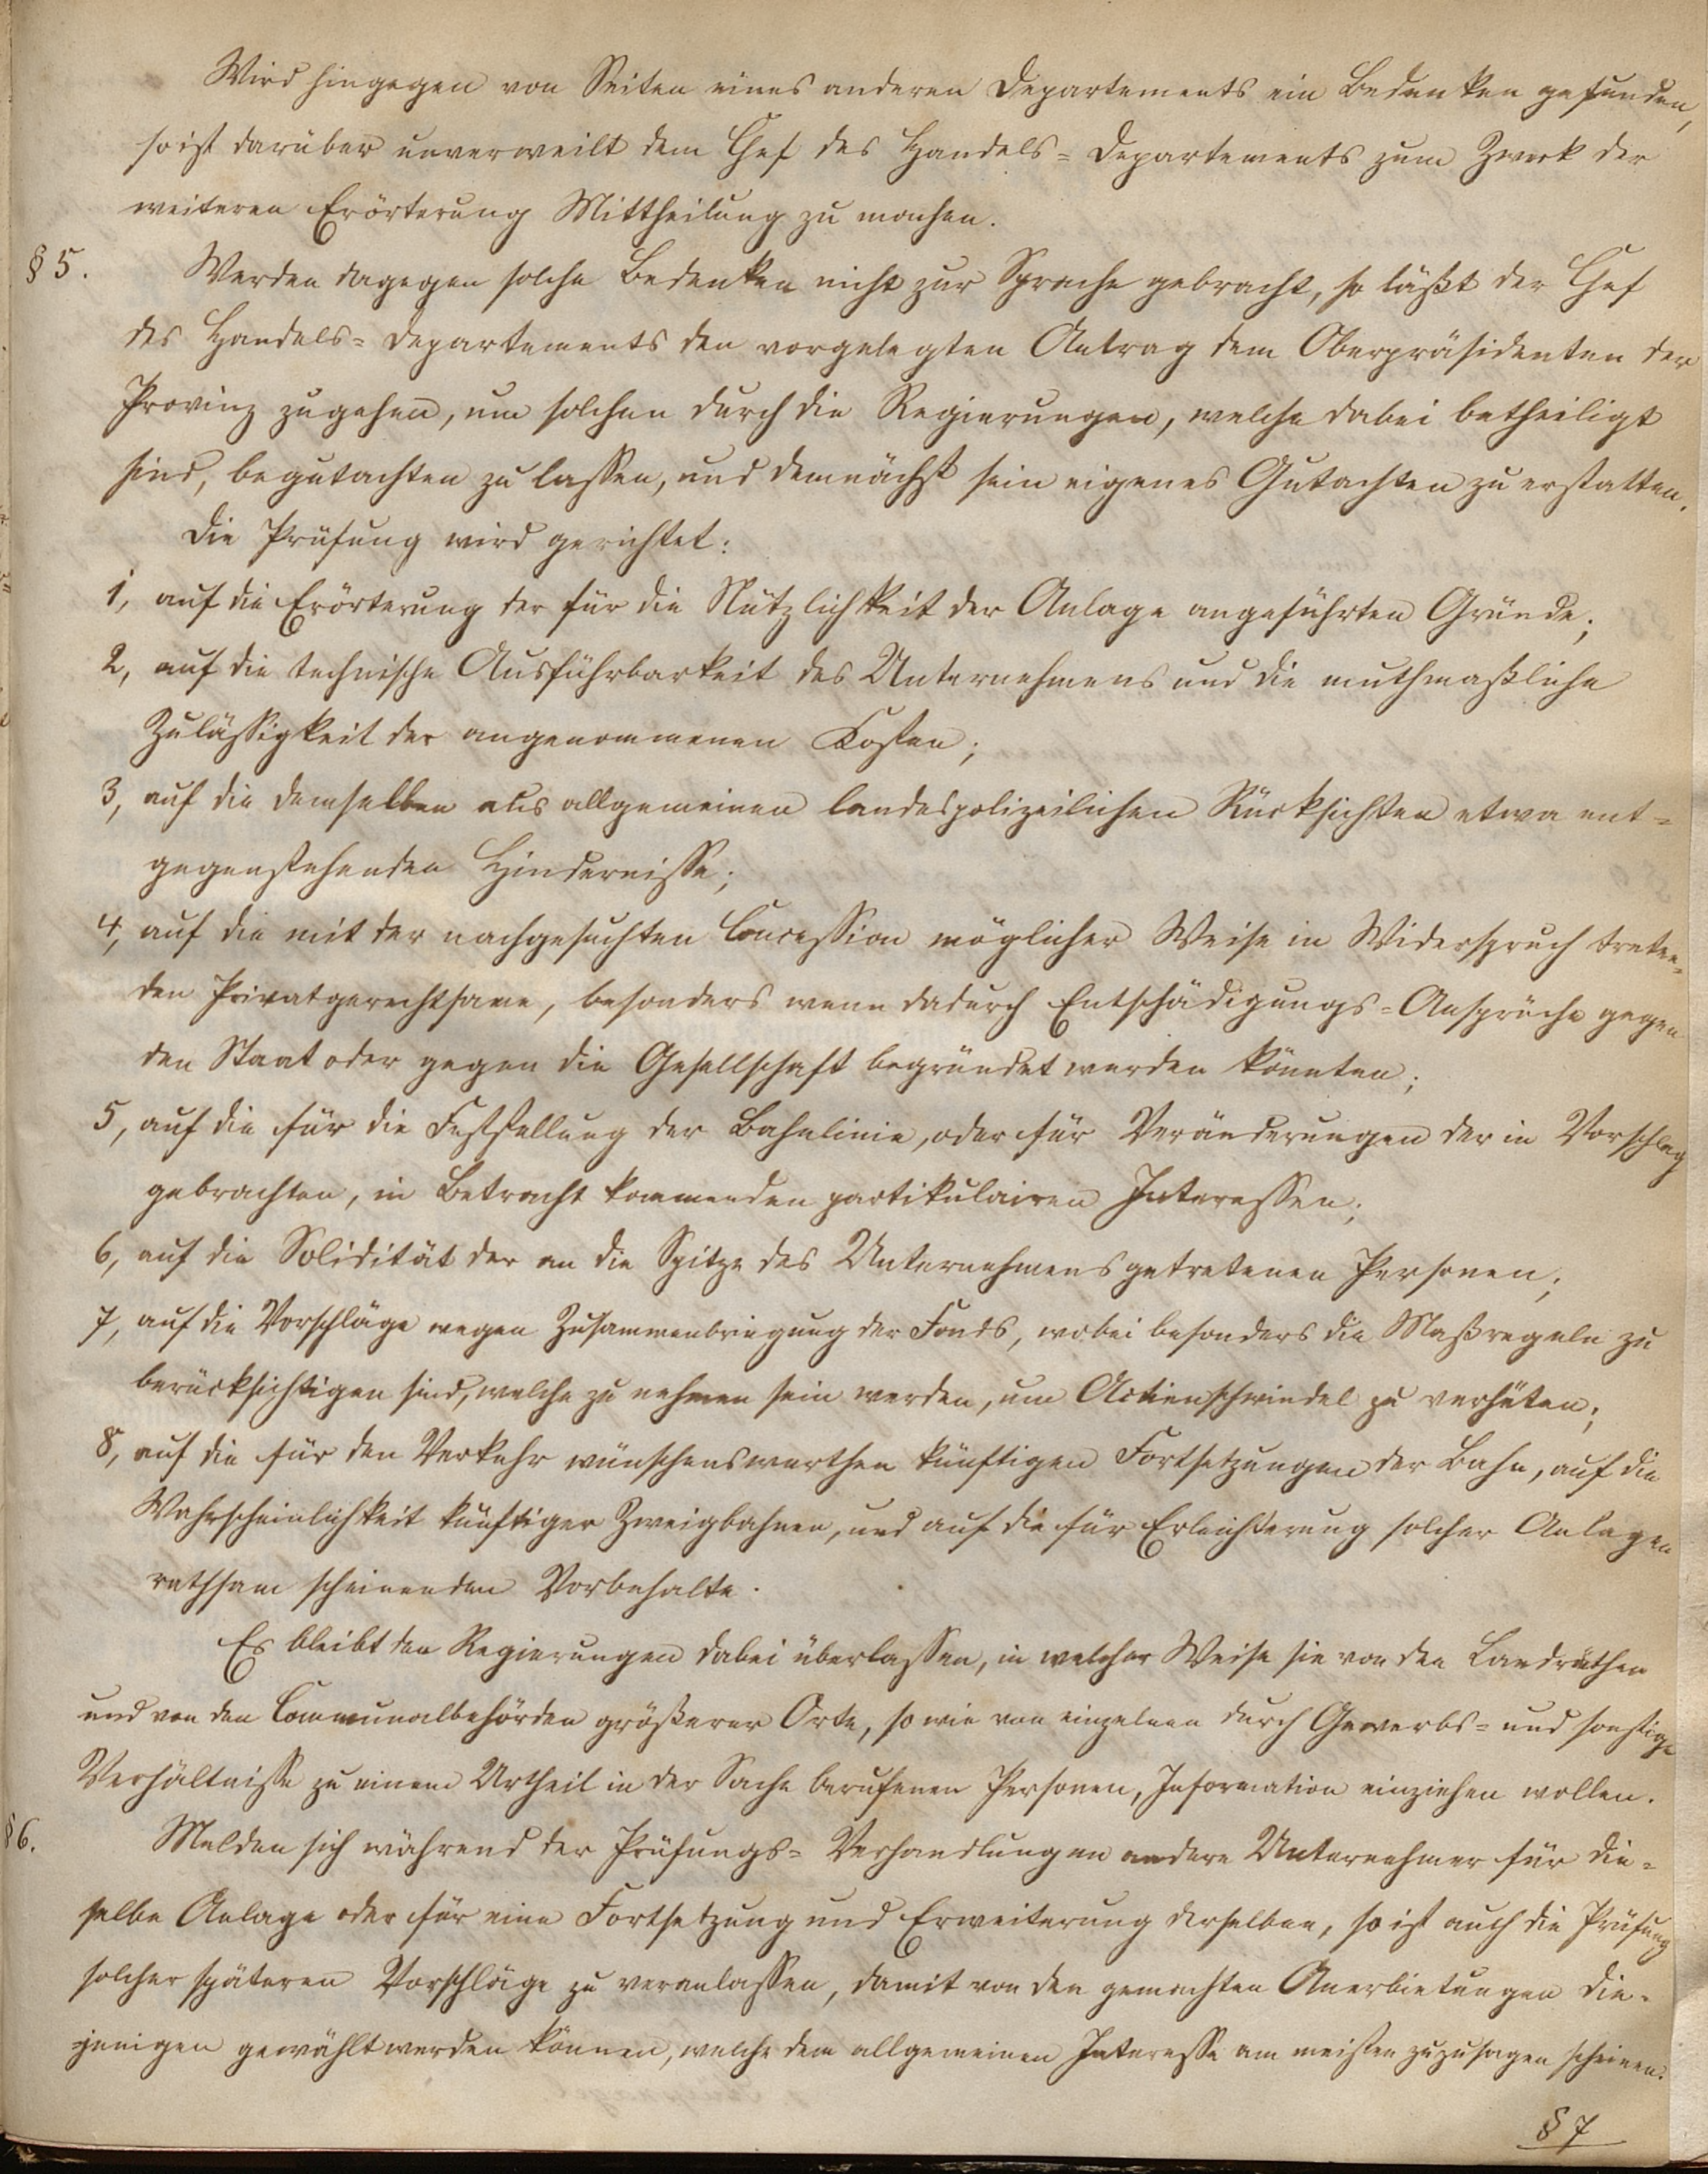 Wird hingegen von Seiten eines anderen Departements ein Bedenken gefunden,
so ist darüber unverweilt dem Chef des Handels=Departements zum Zweck der
weiteren Erörterung Mittheilung zu machen.
§ 5. Werden dagegen solche Bedenken nicht zur Sprache gebracht, so läßt der Chef
des Handels=Departements den vorgelegten Antrag dem Oberpräsidenten der
Provinz zugehen, um solchen durch die Regierungen, welche dabei betheiligt
sind, begutachten zu lassen, und demnächst sein eigenes Gutachten zu erstatten.
Die Prüfung wird gerichtet:
1, auf die Erörterung der für die Nützlichkeit der Anlage angeführten Gründe;
2, auf die technische Ausführbarkeit des Unternehmens und die muthmaßliche
Zulässigkeit der angenommenen Kosten;
3, auf die demselben aus allgemeinen landespolizeilichen Rücksichten etwa ent=
gegenstehenden Hindernisse;
4, auf die mit der nachgesuchten Concession möglicher Weise in Widerspruch treten=
den Privatgerechtsame, besonders wenn dadurch Entschädigungs=Ansprüche gegen
den Staat oder gegen die Gesellschaft begründet werden könnten;
5, auf die für die Feststellung der Bahnlinie, oder für Veränderungen der in Vorschlag
gebrachten, in Betracht kommenden partikulairen Interessen;
6, auf die Solidität der an die Spitze des Unternehmens getretenen Personen;
7, auf die Vorschläge wegen Zusammenbringung der Fonds, wobei besonders die Maßregeln zu
berücksichtigen sind, welche zu nehmen sein werden, um Actienschwindel zu verhüten;
8, auf die für den Verkehr wünschenswerthen künftigen Fortsetzungen der Bahn, auf die
Wahrscheinlichkeit künftiger Zweigbahnen, und auf die für Erleichterung solcher Anlagen
rathsam scheinenden Vorbehalte.
Es bleibt den Regierungen dabei überlassen, in welcher Weise sie von den Landräthen
und von den Communalbehörden größerer Orte, so wie von einzelnen durch Gewerbs= und sonstige
Verhältnisse zu einem Urtheil in der Sache berufenen Personen, Information einziehen wollen.
§ 6. Melden sich während der Prüfungs=Verhandlungen andere Unternehmer für die=
selbe Anlage oder für eine Fortsetzung und Erweiterung derselben, so ist auch die Prüfung
solcher späteren Vorschläge zu veranlassen, damit von den gemachten Anerbietungen die=
jenigen gewählt werden können, welche dem allgemeinen Interesse am meisten zuzusagen scheinen.
§ 7